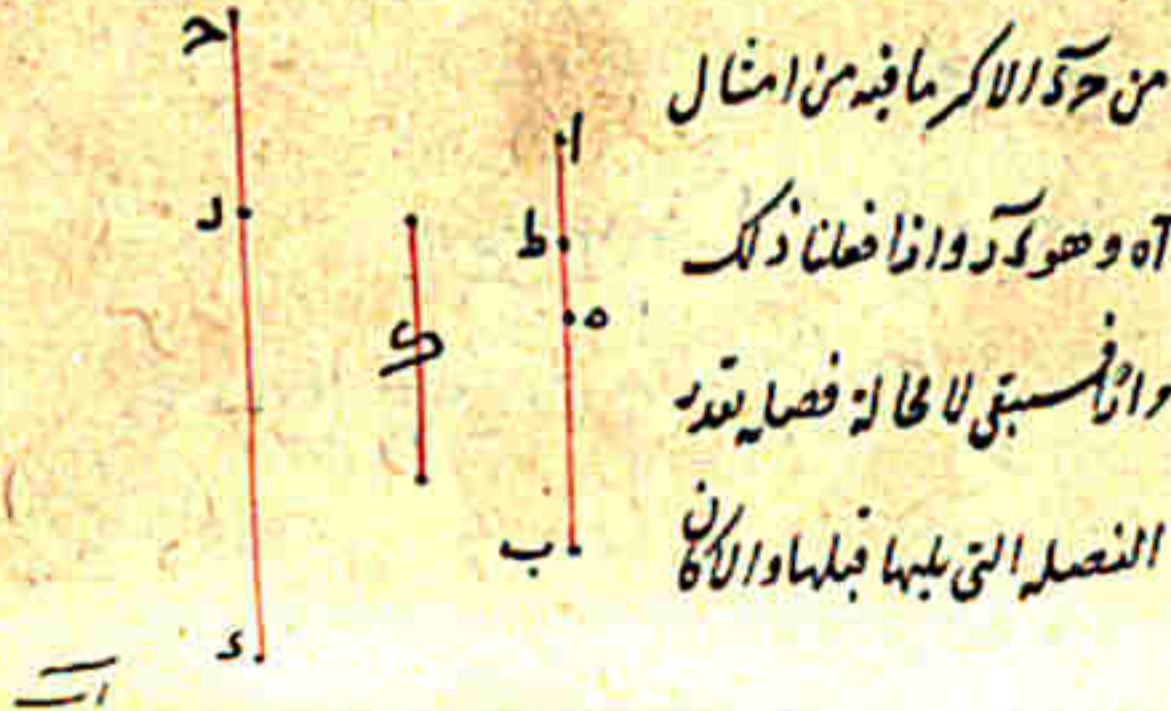 من حد الاكبر ما فيه من امثال
اه وهو در واذا فعلنا ذلك
دائما فسيبقى لا محالة فضل يقدر
الفضلة التي يليها قبلها والا كان
ح
ر
د
ا
ط
ه
ب